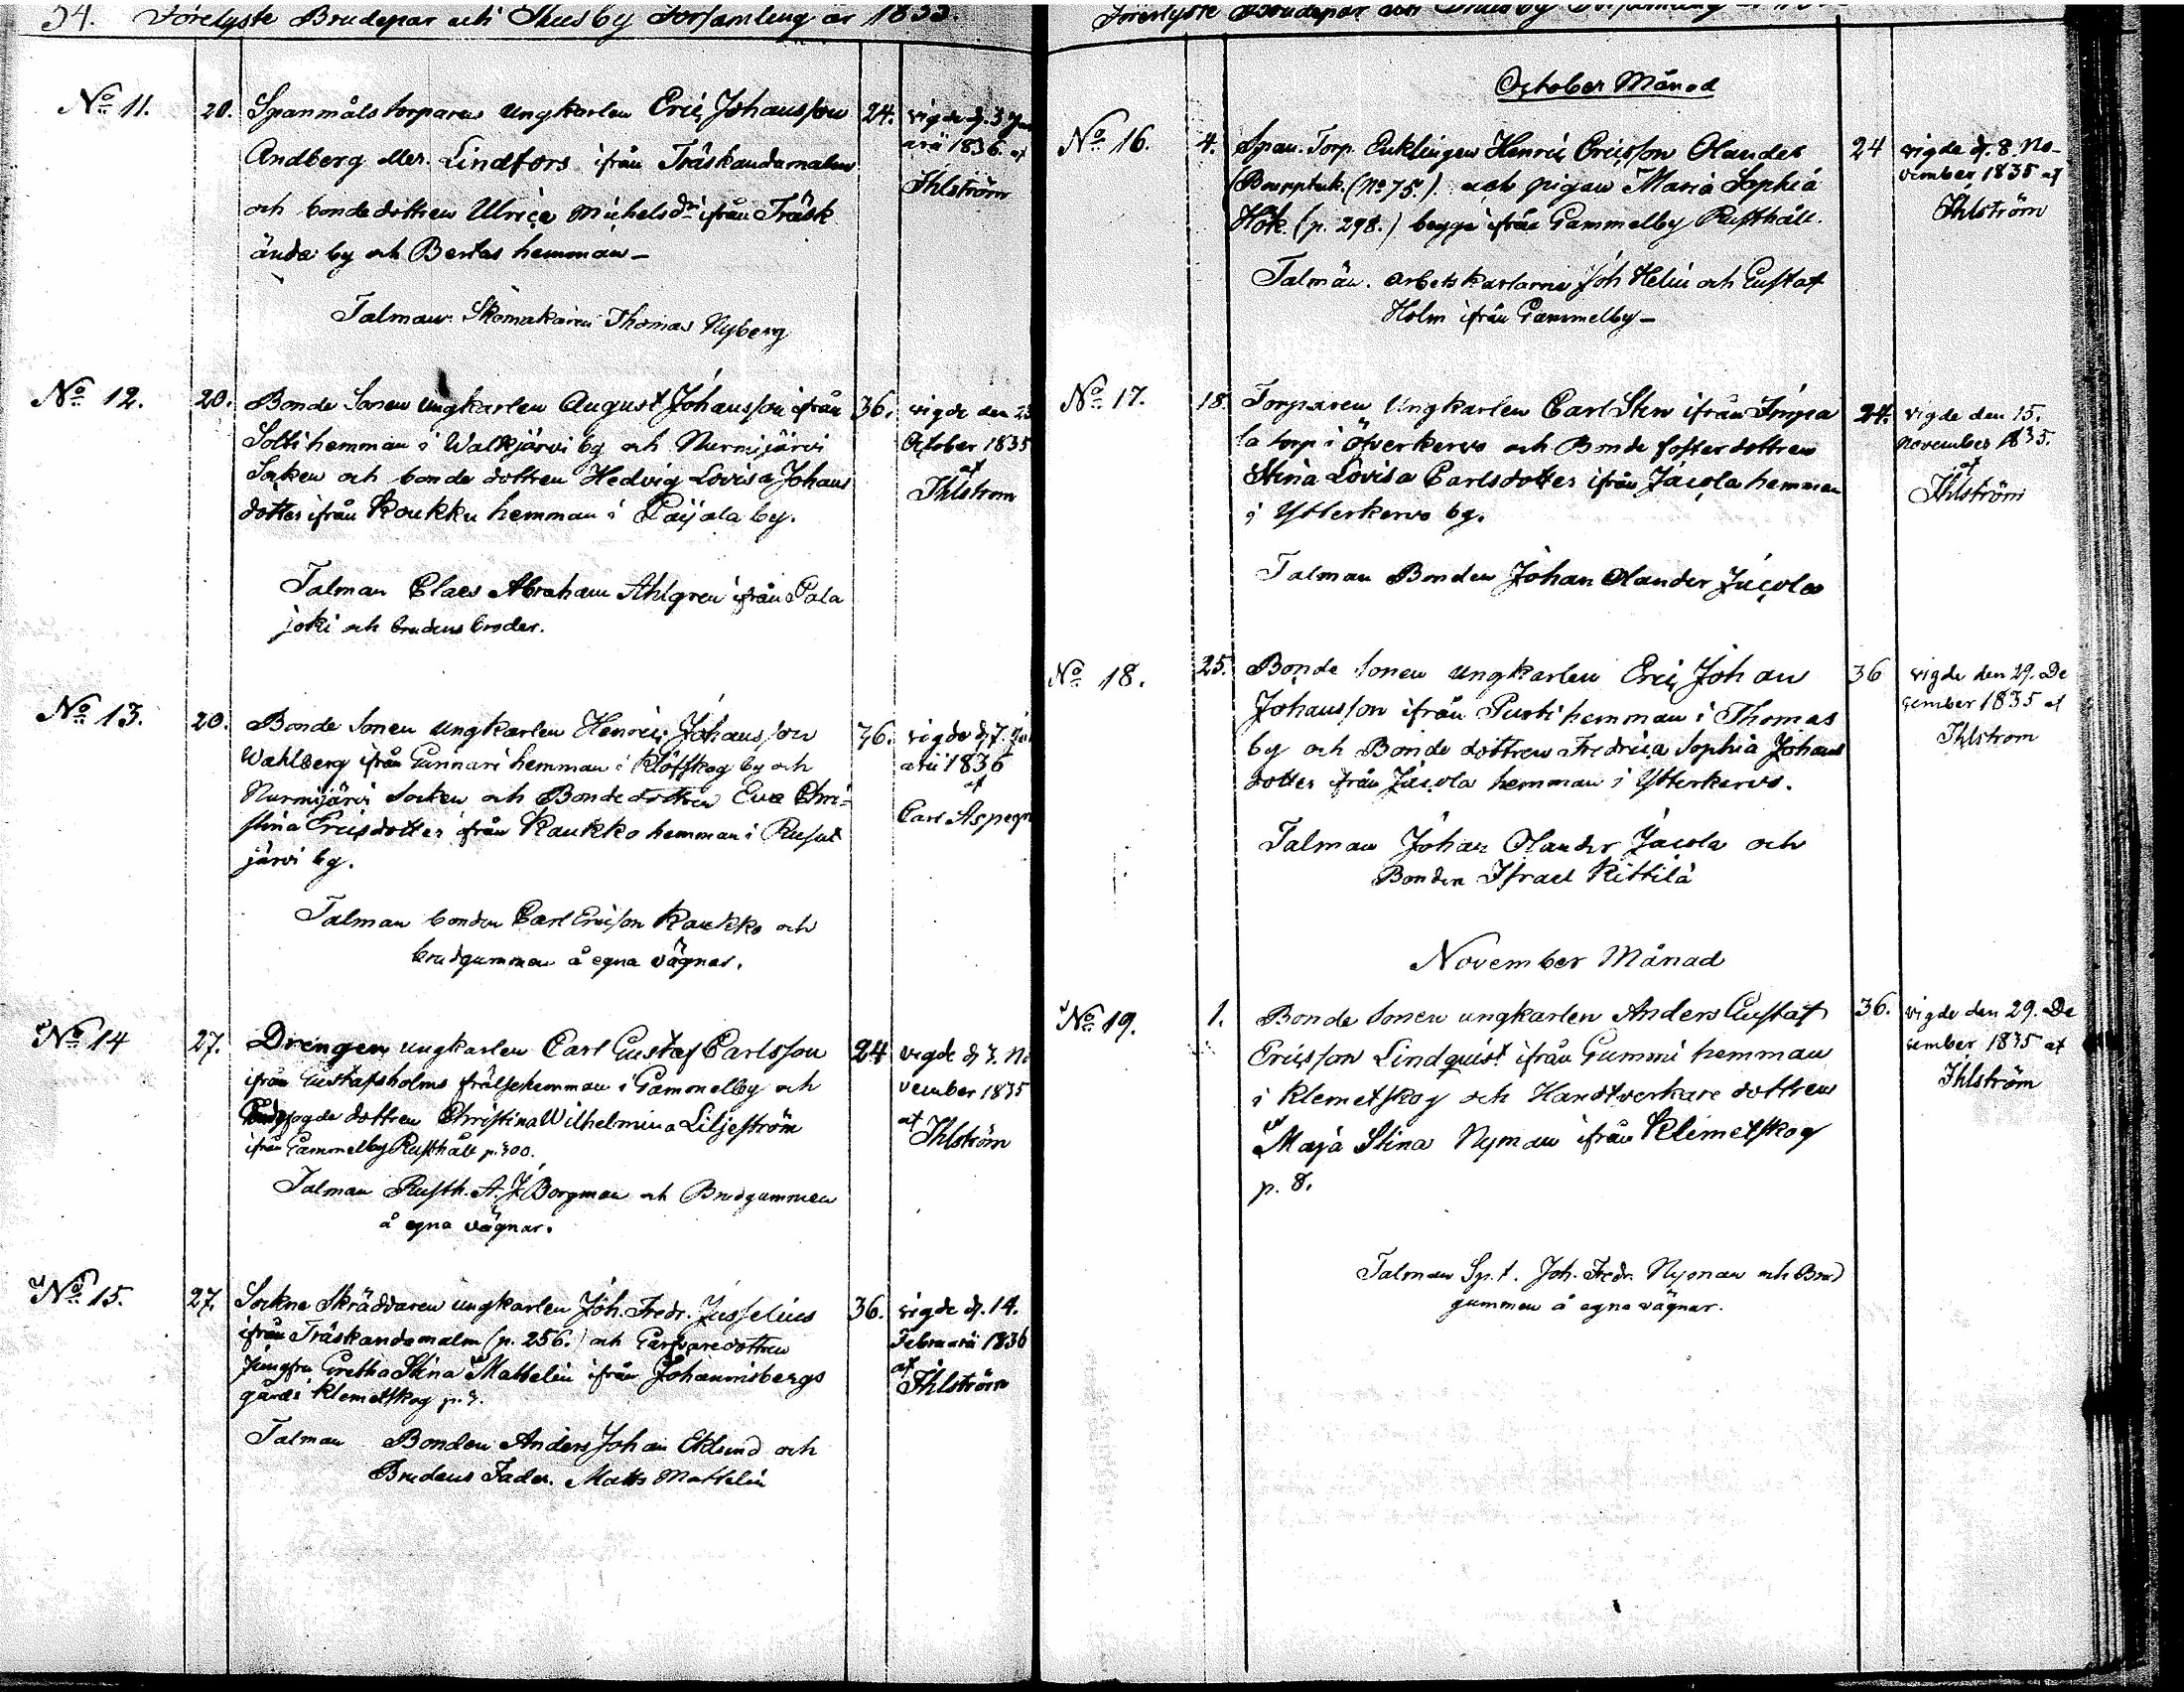 54. Förelyste Brudepar uti Thusby Församling år 1835.
No 11. 20. Spanmåls torparen ungkarlen Eric Johansson 24. vigde d. 3 Jan
Andberg eller Lindfors ifrån Träskändamalm uarii 1836 af
och bonde dottren Ulrica Michelsdr ifrån Träsk Ihlström
ända by och Bertas hemman_
Talman Skomakaren Thomas Nyberg
No 12. 20. Bonde Sonen ungkarlen August Johansson ifrån 36. vigde den 25
Solti hemman i Walkjärvi by och Nurmijärvi October 1835
Socken och bonde dottren Hedvig Lovisa Johans af
dotter ifrån Koukku hemman i Paijala by. Ihlström
Talman Claes Abraham Ahlgren ifrån Pala
joki och brudens broder.
No 13. 20. Bonde Sonen ungkarlen Henric Johansson 36. vigde d. 7.
Wahlberg ifrån Gunnari hemman i Klöfskog by och arii 1836
Nurmijärvi Socken och Bonde dottren Eva Chri- af
stina Ericsdotter ifrån Kaukko hemman i Rusut Carl Aspegr
järvi by.
Talman bonden Carl Ericson Kaukko och
brudgummen å egna vägnar.
No 14 27. Drengen ungkarlen Carl Gustaf Carlsson 24 vigde d. No
ifrån Gustafsholms frälsehemman i Gammelby och vember 1835
fogde dottren Christina Wilhelmina Liljeström af
ifrån Gammelby Rusthåll p. 300. Ihlström
Talman Rusth. A. J. Borgman och Brudgummen
å egna vägnar.
No 15. 27. Sockne Skräddaren ungkarlen Joh. Fredr. Jusselius 36. vigde d. 14.
ifrån Träskändamalm (p. 256.) och Garfvaredottren Februarii 1836
Jungfru Gretha Stina Mattelin ifrån Johannisbergs af
gård i Klemetskog p. Ihlström
Talman Bonden Anders Johan Eklund och
Brudens Fader Matts Mattelin
Förelyste Brudepar uti Thusby Församling
October Månad
No 16. 4. Span. Torp. Enklingen Henric Ericsson Olander 24 vigde d. 8. No-
(No 75.) och pigan Maria Sophia vember 1835 af
Hök (p. 298.) begge ifrån Gammelby Rusthåll. Ihlström
Talmän. arbetskarlarne Joh Helin och Gustaf
Holm ifrån Gammelby_
No 17. 18. Torparen Ungkarlen Carl Sten ifrån Impa 24. vigde den 15.
la torp i Öfverkervo och Bonde fosterdottren November 1835.
Stina Lovisa Carlsdotter ifrån Jäcola hemman af
i Ytterkervo by. Ihlström
Talman Bonden Johan Olander Jäcola
No 18. 25. Bonde Sonen ungkarlen Eric Johan 36 vigde den 29. De
Johansson ifrån Pusti hemman i Thomas cember 1835 af
by och Bonde dottren Fredrica Sophia Johans Ihlström
dotter ifrån Jäcola hemman i Ytterkervo.
Talman Johan Olander Jäcola och
Bonden Israel Kittilä
November Månad
No 19. 1. Bonde Sonen ungkarlen Anders Gustaf 36. vigde den 29. De
Ericsson Lindquist ifrån Gummi hemman cember 1835 af
i Klemetskog och Handtverkare dottren Ihlström
Maja Stina Nyman ifrån Klemetskog
p. 8.
Talman Sp. t. Joh. Fredr. Nyman och Brud
gummen å egna vägnar.